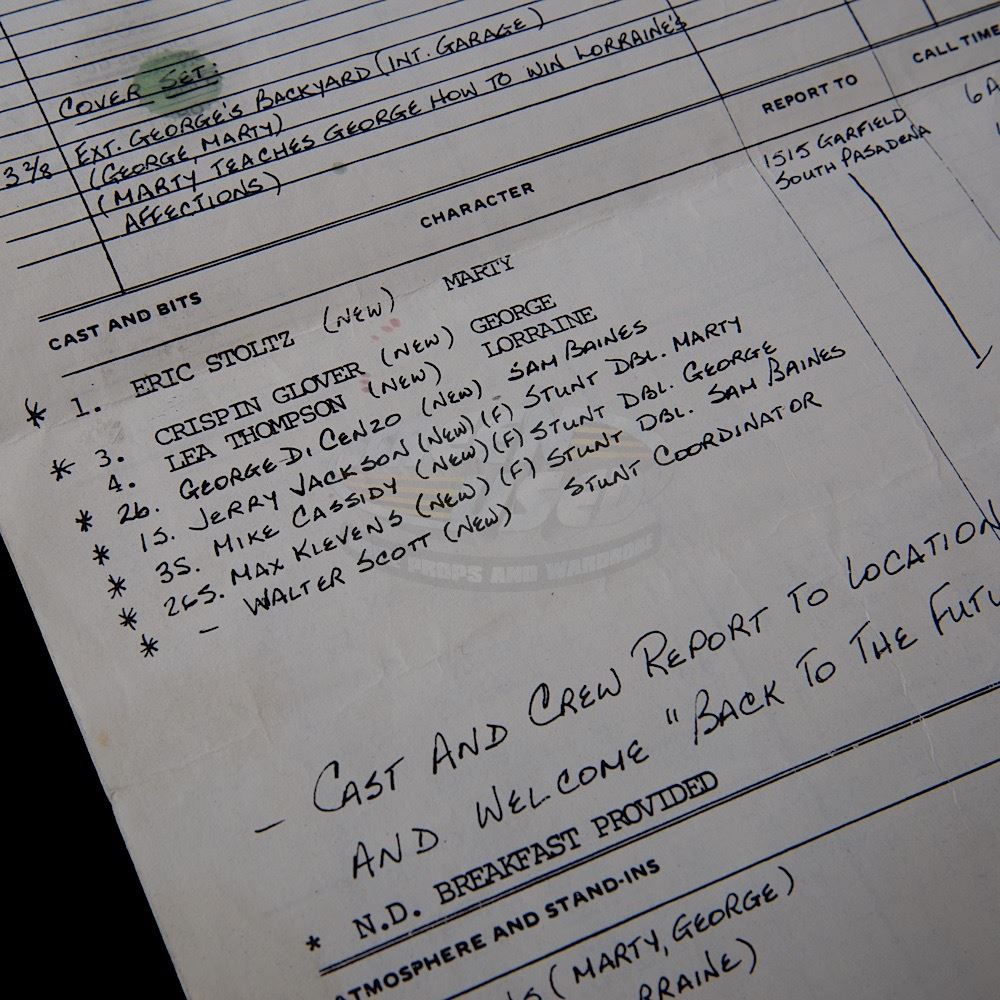 COVER SET:
EXT. GEORGE'S BACKYARD (INT. GARAGE)
3 2/8 (GEORGE, MARTY)
(MARTY TEACHES GEORGE HOW TO WIN LORRAINE'S
AFFECTIONS)
CAST AND BITS CHARACTER REPORT TO CALL TIME
* 1. ERIC STOLTZ (NEW) MARTY 1515 GARFIELD 6A
SOUTH PASADENA
* 3. CRISPIN GLOVER (NEW) GEORGE
4. LEA THOMPSON (NEW) LORRAINE
* 26. GEORGE DI CENZO (NEW) SAM BAINES
* 1S. JERRY JACKSON (NEW) (F) STUNT DBL. MARTY
* 3S. MIKE CASSIDY (NEW) (F) STUNT DBL. GEORGE
* 26S. MAX KLEVENS (NEW) (F) STUNT DBL. SAM BAINES
* – WALTER SCOTT (NEW) STUNT COORDINATOR
PROPS AND WARDROBE
– CAST AND CREW REPORT TO LOCATION
AND WELCOME "BACK TO THE FUTU
* N.D. BREAKFAST PROVIDED
ATMOSPHERE AND STAND-INS
(MARTY, GEORGE)
RRAINE)